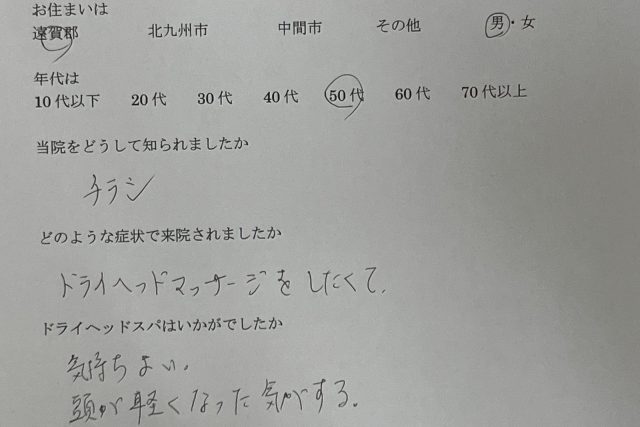 お住まいは
遠賀郡 北九州市 中間市 その他 男・女
年代は
10代以下 20代 30代 40代 50代 60代 70代以上
当院をどうして知られましたか
チラシ
どのような症状で来院されましたか
ドライヘッドマッサージをしたくて、
ドライヘッドスパはいかがでしたか
気持ちよい。
頭が軽くなった気がする。